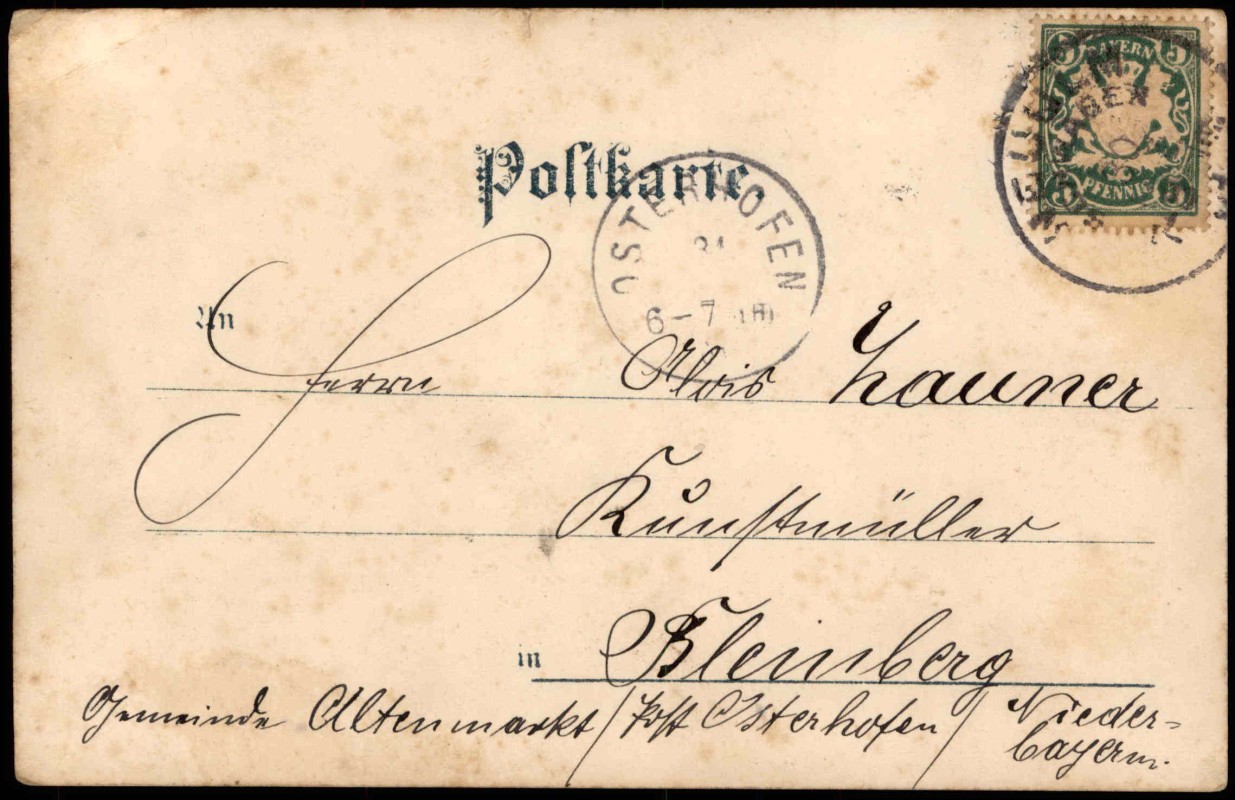 BAYERN
5 5
PFENNIG
Postkarte
OSTERHOFEN
6-7
An
Herrn Alois Zauner
Kunstmüller
in Kleinberg
Gemeinde Altenmarkt / Post Osterhofen / Nieder=
bayern.